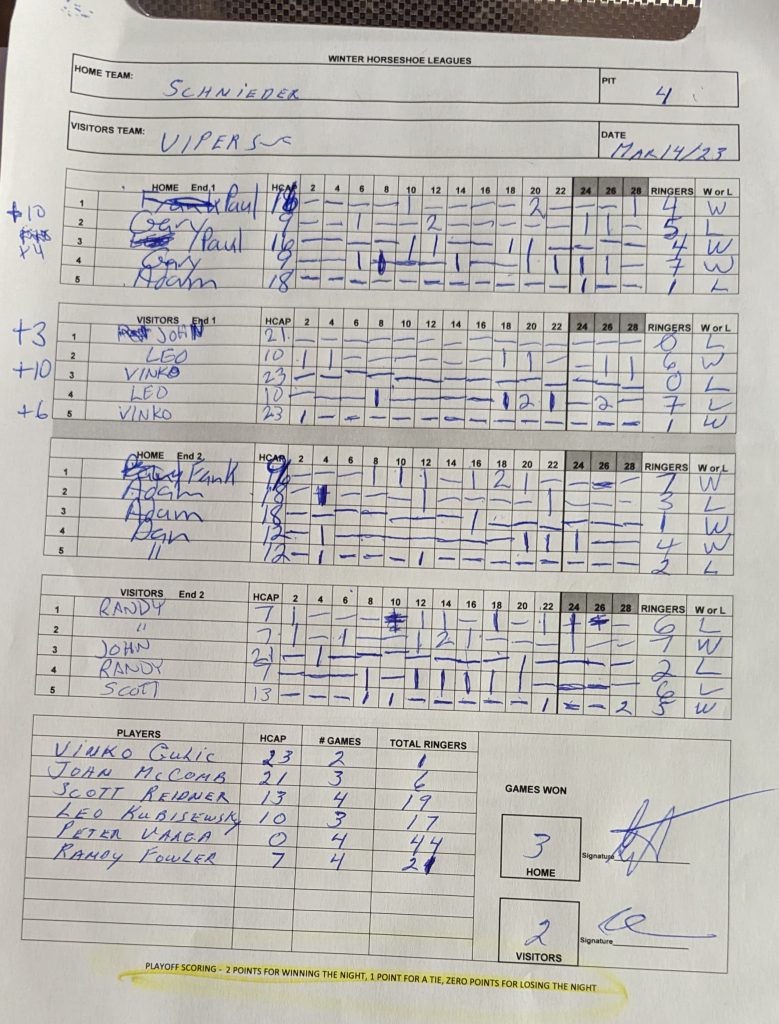 WINTER HORSESHOE LEAGUES
HOME TEAM: SCHNIEDER PIT 4
VISITORS TEAM: VIPERS DATE MAR 14/23
HOME End 1 HCAP 2 4 6 8 10 12 14 16 18 20 22 24 26 28 RINGERS W or L
1 Paul 16 - - - - 1 - - - - 2 - - - 1 4 W
+10 2 Gary 9 - - 1 - - 2 - - - - - 1 1 - 5 L
x4 3 /Paul 16 - - - - 1 1 - - 1 1 - - - - 4 W
4 Gary 9 7 W
5 Adam 18 - - - - - - - - - - - 1 - - 1 L
VISITORS End 1 HCAP 2 4 6 8 10 12 14 16 18 20 22 24 26 28 RINGERS W or L
+3 1 JOHN 21 - - - - - - - - - - - - - - 0 L
2 LEO 10 1 1 - - - - - - 1 1 - - 1 1 6 W
+10 3 VINKO 23 - - - - - - - - - - - - - - 0 L
4 LEO 10 - - - 1 - - - - 1 2 1 - 2 - 7 L
+6 5 VINKO 23 1 - - - - - - - - - - - - - 1 W
HOME End 2 HCAP 2 4 6 8 10 12 14 16 18 20 22 24 26 28 RINGERS W or L
1 Fank 7 W
2 Adam 18 3 L
3 Adam 18 - - - - - - - 1 - - - - - - 1 W
4 Dan 12 - - - - - - - - - 1 1 1 - - 4 W
5 " 12 - 1 - - - 1 - - - - - - - - 2 L
VISITORS End 2 HCAP 2 4 6 8 10 12 14 16 18 20 22 24 26 28 RINGERS W or L
1 RANDY 7 6 L
2 " 7 1 - 1 - - 1 2 1 - - - 1 - - 7 W
3 JOHN 21 2 L
4 RANDY 7 6 L
5 SCOTT 13 - - - 1 1 - - - - - 1 - - 2 5 W
PLAYERS HCAP # GAMES TOTAL RINGERS
VINKO GULIC 23 2 1
JOHN McCOMB 21 3 6
SCOTT REIDNER 13 4 19
LEO KUBISEWSKY 10 3 17
PETER VARGA 0 4 44
RANDY FOWLER 7 4 21
GAMES WON
3 Signature
HOME
2 Signature
VISITORS
PLAYOFF SCORING - 2 POINTS FOR WINNING THE NIGHT, 1 POINT FOR A TIE, ZERO POINTS FOR LOSING THE NIGHT